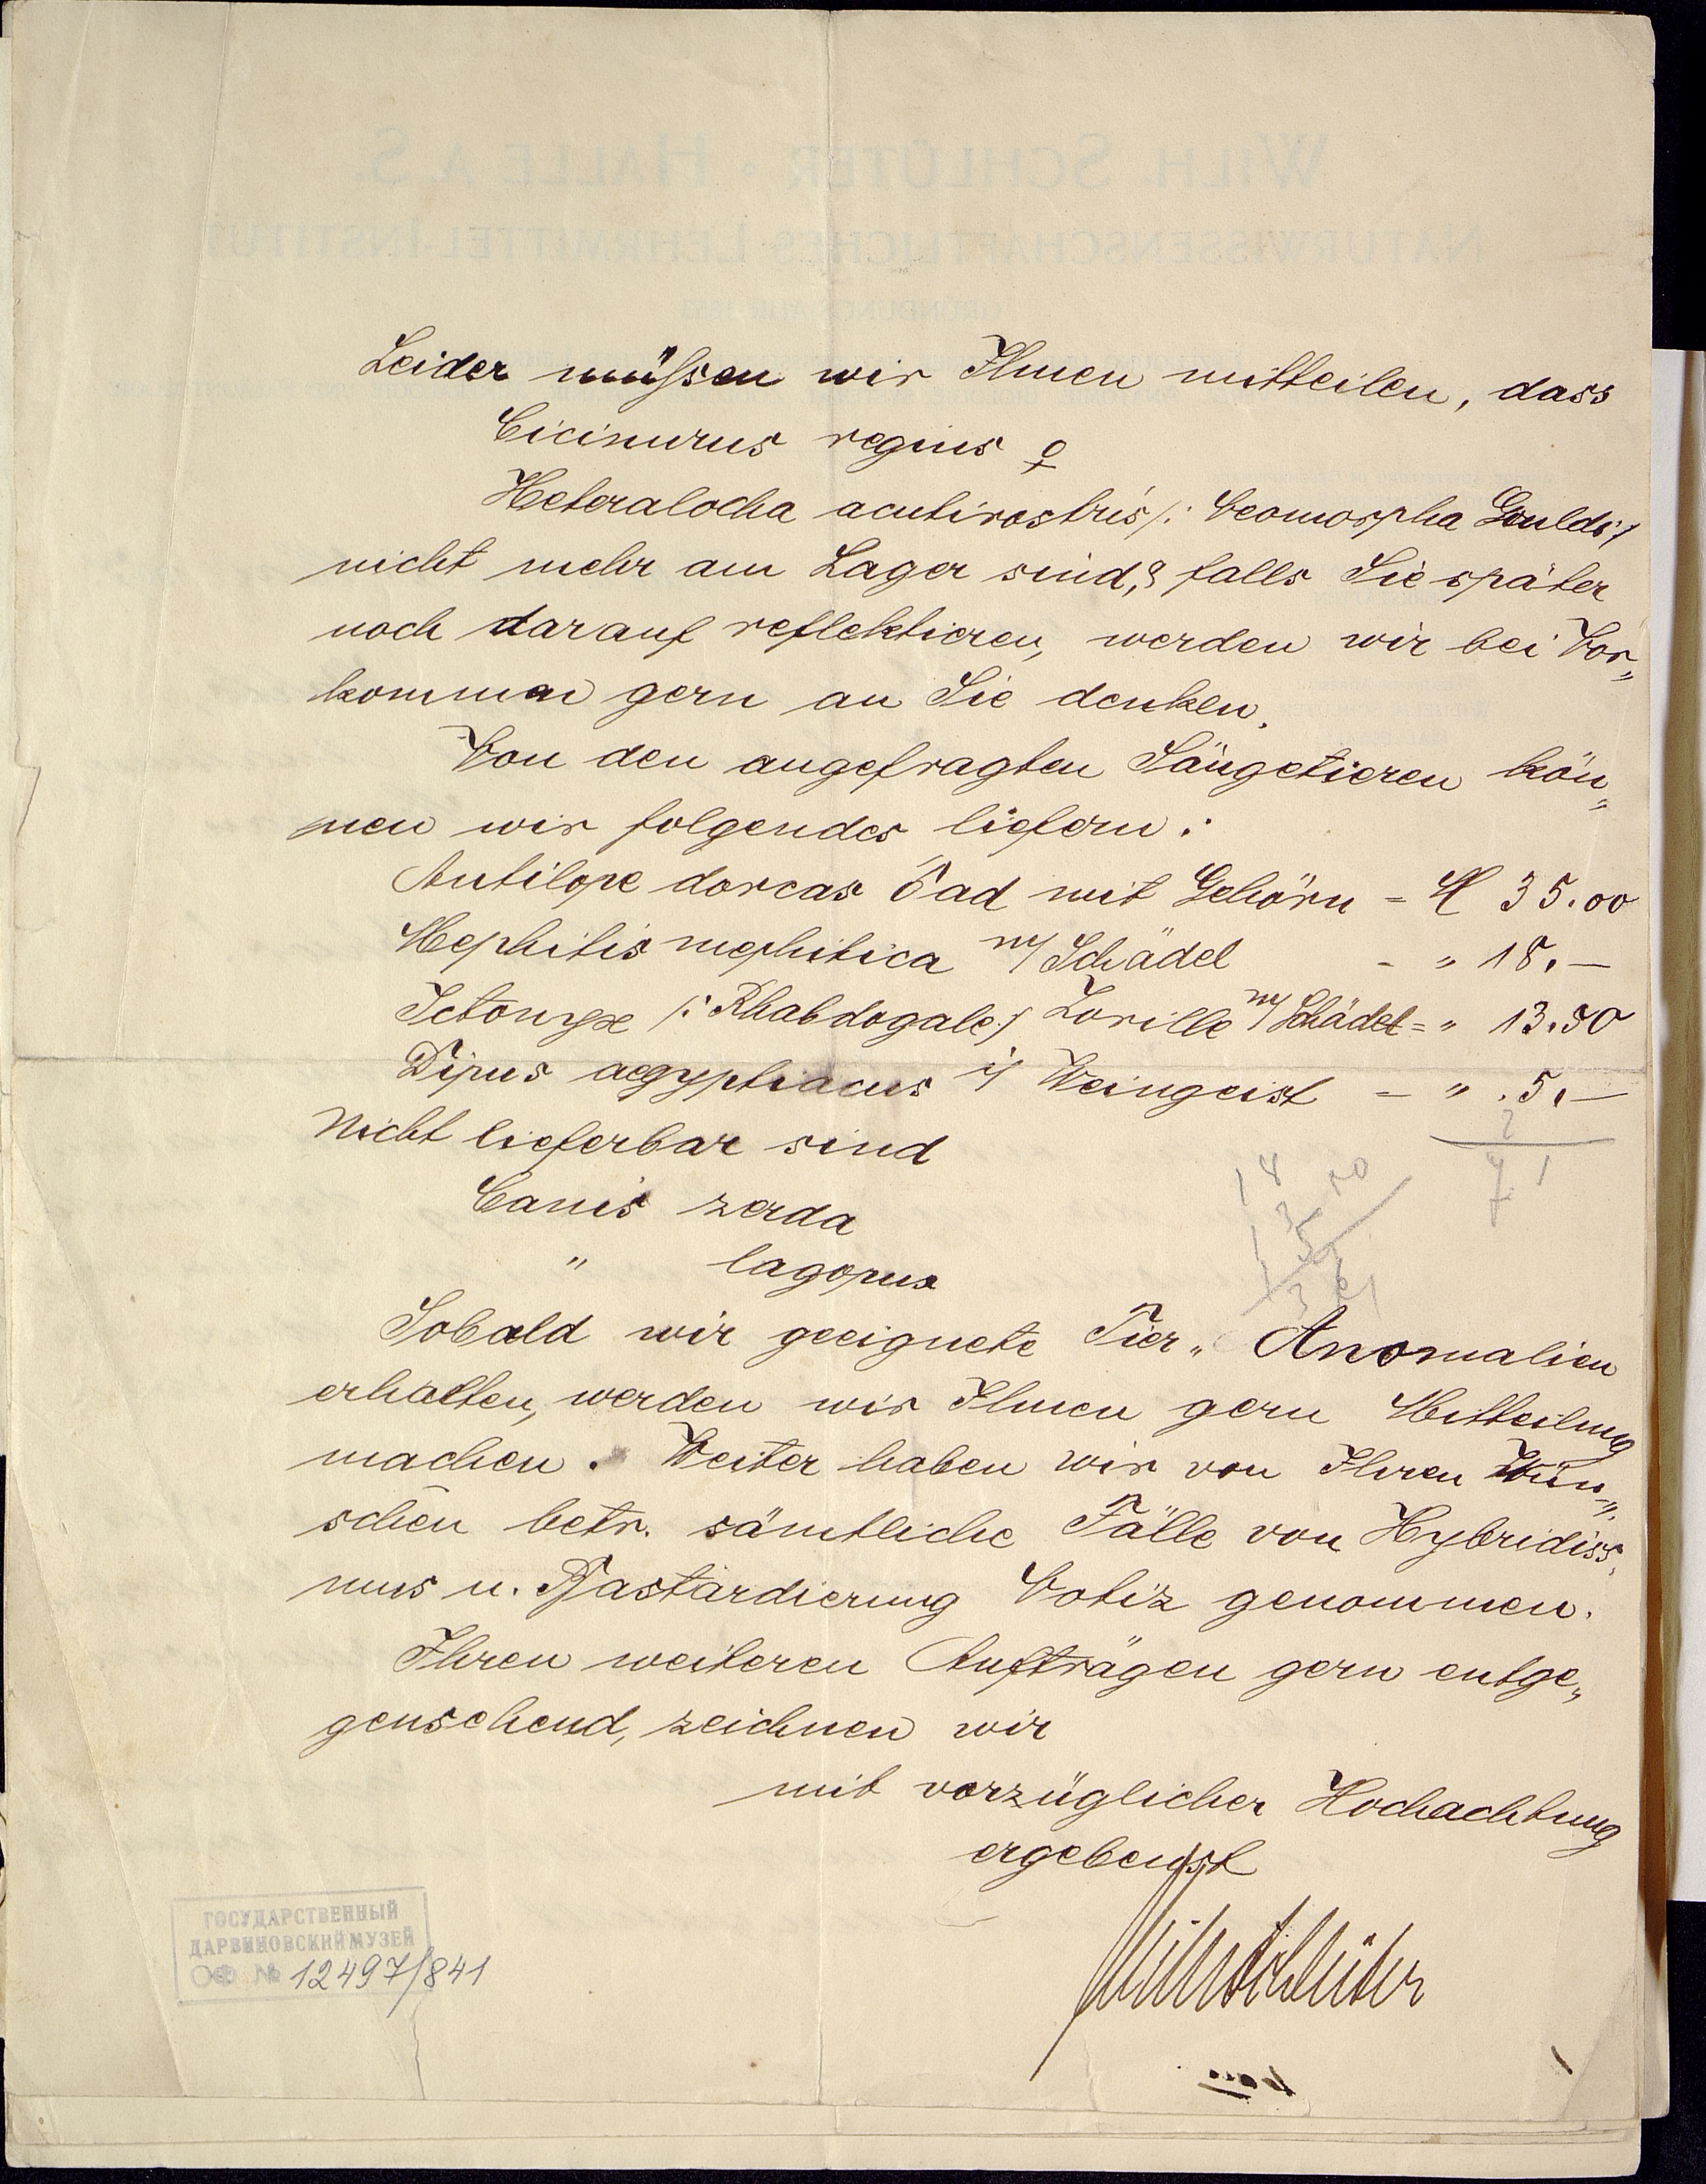 Leider müssen wir Ihnen mitteilen, dass
Cicinurus regius ♀
Heteralocha acutirostris /: Neomorpha Gouldi :/
nicht mehr am Lager sind, & falls Sie später
noch darauf reflektieren, werden wir bei Vor„
kommen gern an Sie denken.
Von den angefragten Säugetieren kön„
nen wir folgendes liefern:
Antilope dorcas ♂ ad mit Gehörn = M 35.00
Mephitis mephitica m/ Schädel - " 18.—
Ictonyx /: Rhabdogale :/ Zorille m/ Schädel = " 13.50
Dipus aegyptiacus i/ Weingeist — " 5.—
71
Nicht lieferbar sind
Canis zerda
" lagopus
Sobald wir geeignete Tier„ Anomalien
erhalten, werden wir Ihnen gern Mitteilung
machen. Weiter haben wir von Ihren Wün„
schen betr. sämtliche Fälle von Hybridis„
mus u. Bastardierung Notiz genommen.
Ihren weiteren Aufträgen gern entge„
gensehend, zeichnen wir
mit vorzüglicher Hochachtung
ergebenst
Wilh Schlüter
ГОСУДАРСТВЕННЫЙ
ДАРВИНОВСКИЙ МУЗЕЙ
ОФ № 12497/841